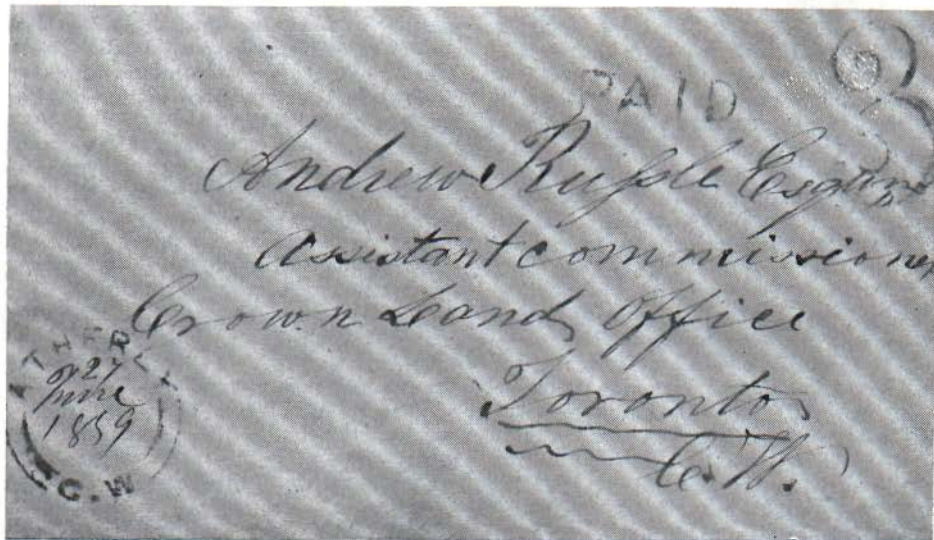 PAID 3
Andrew Russle Esquire
Assistant commissioner
Crown Land Office
Toronto
C.W.
ATHERLY
27
June
1859
C.W